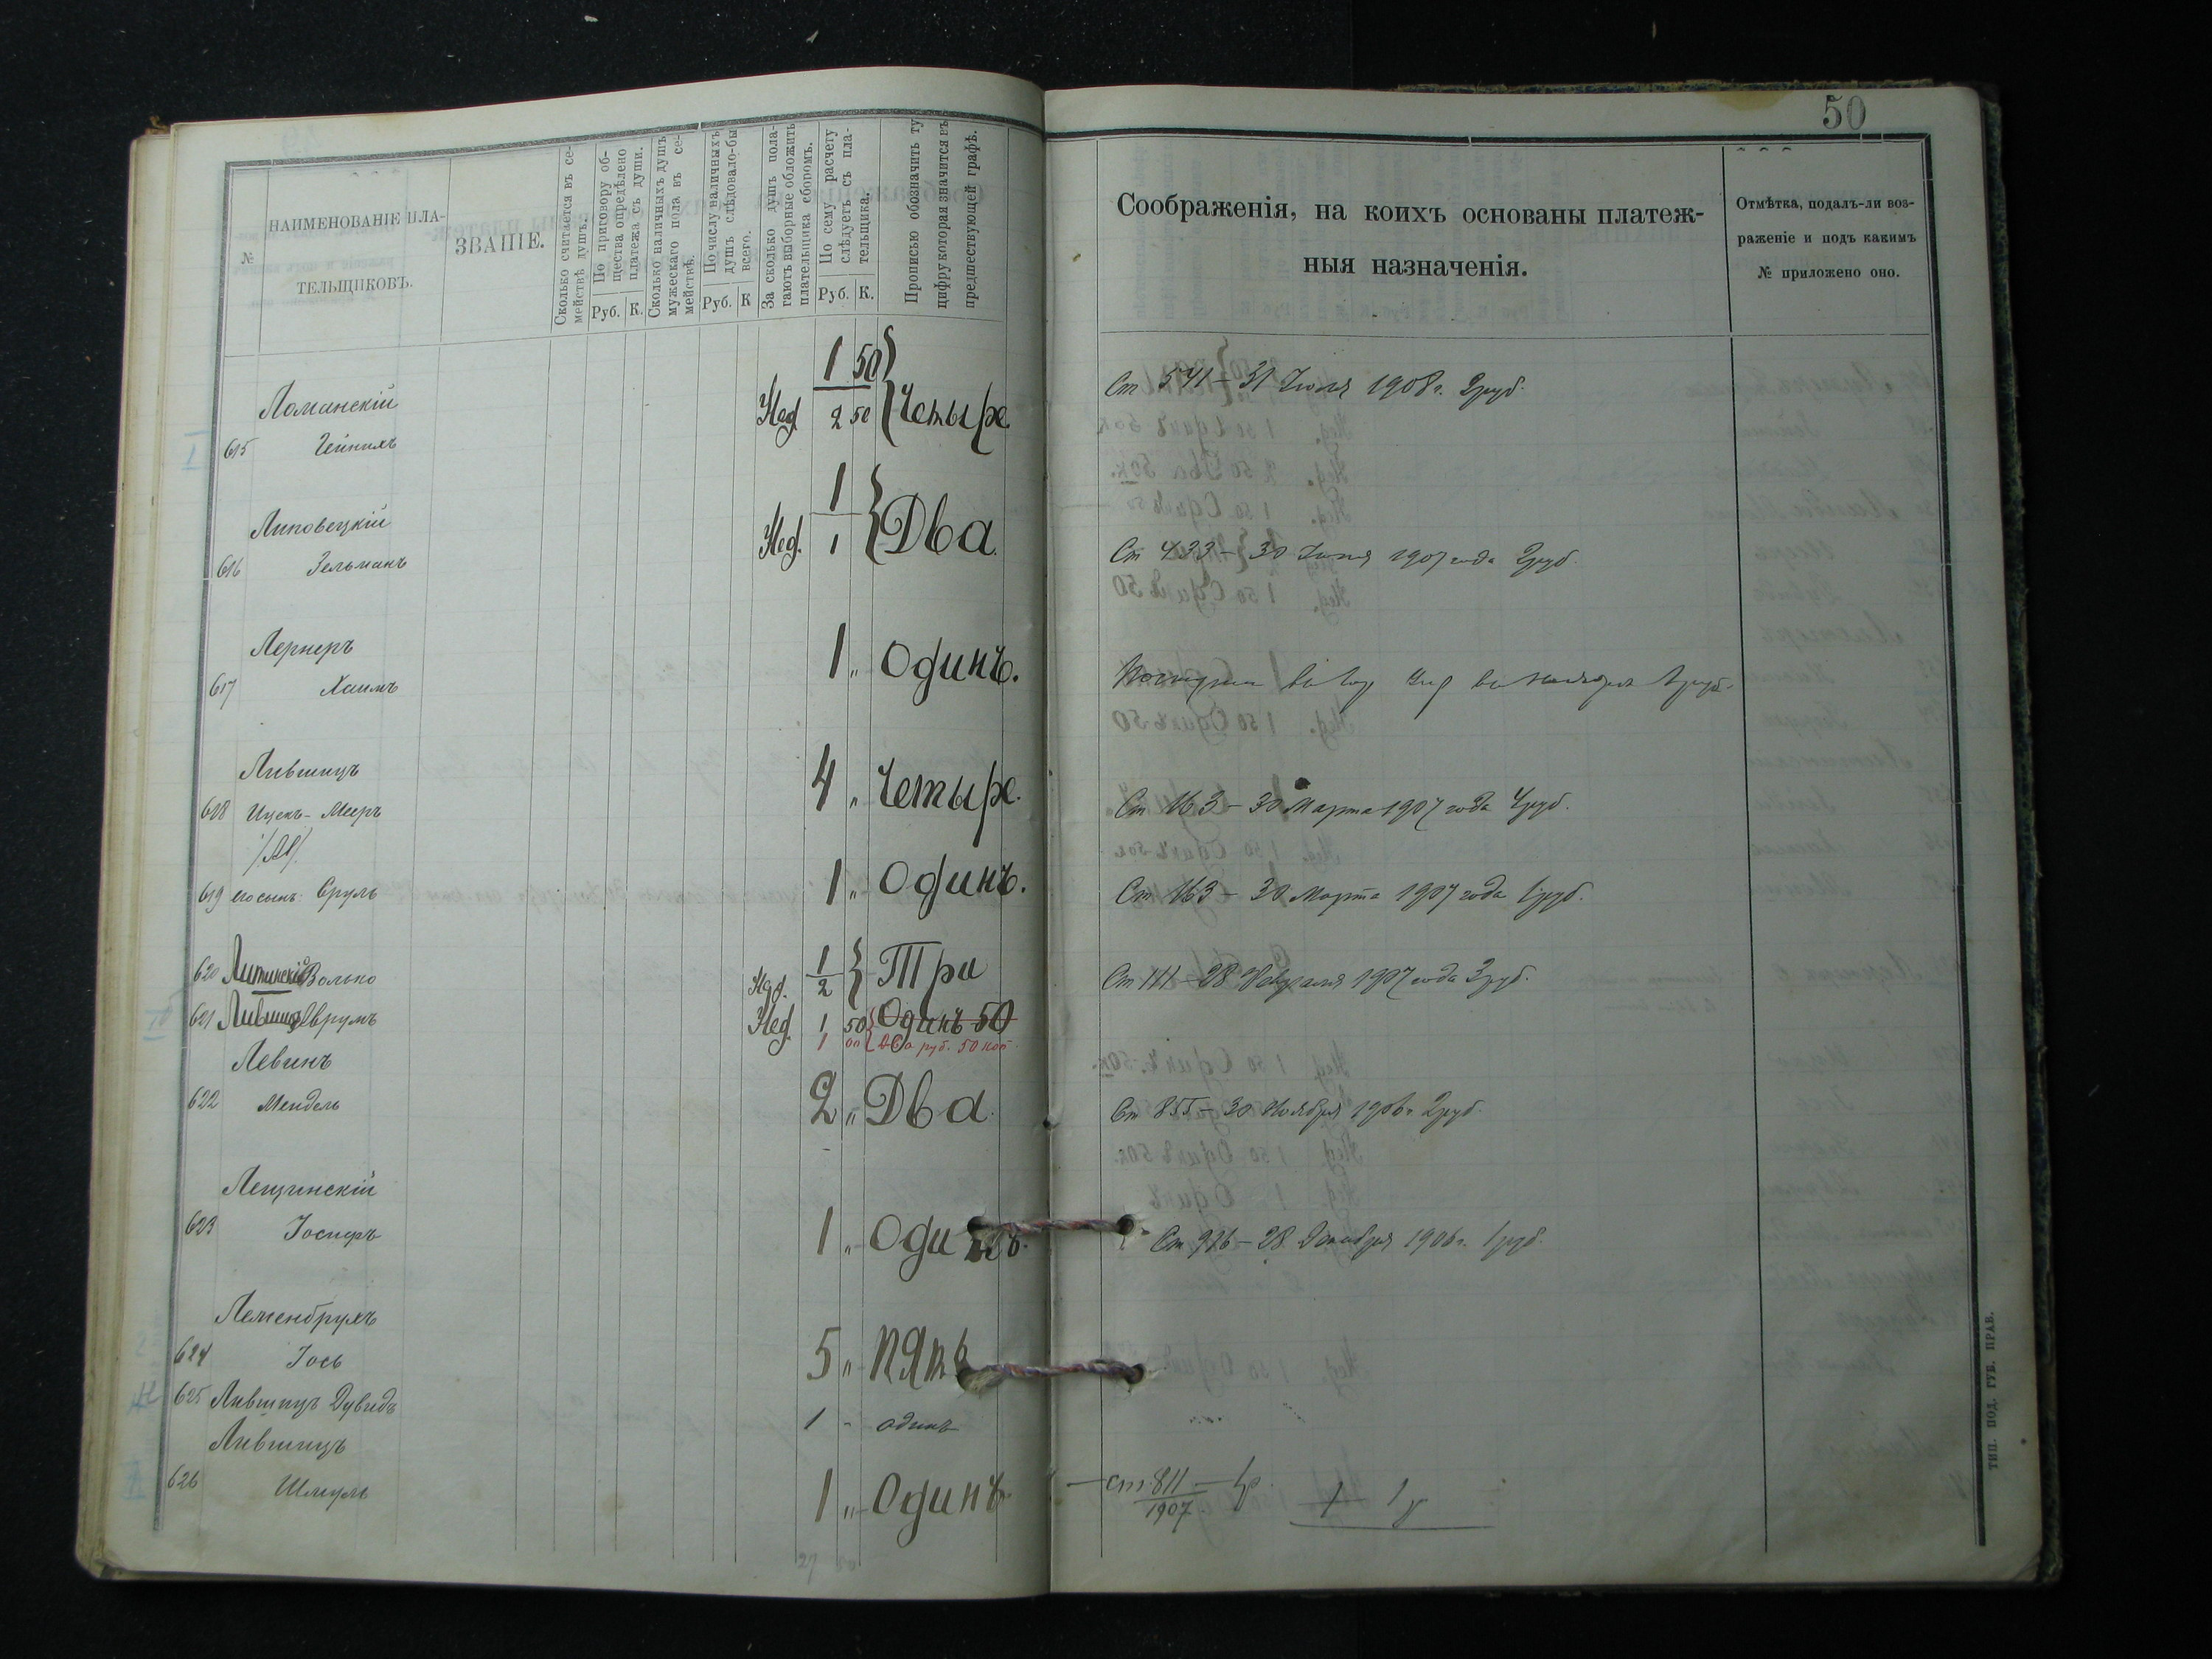 50
№
НАИМЕНОВАНІЕ ПЛА-
ТЕЛЬЩИКОВЪ.
ЗВАНІЕ.
Сколько считается въ се-
мействѣ душъ.
По приговору об-
щества опредѣлено
платежа съ души.
Руб. К.
Сколько наличныхъ душъ
мужескаго пола въ се-
мействѣ.
По числу наличныхъ
душъ слѣдовало-бы
всего.
Руб. К
За сколько душъ пола-
гаютъ выборные обложить
плательщика сборомъ.
По сему расчету
слѣдуетъ съ пла-
тельщика.
Руб. К.
Прописью обозначить ту
цифру которая значится въ
предшествующей графѣ.
Соображенія, на коихъ основаны платеж-
ныя назначенія.
Отмѣтка, подалъ-ли воз-
раженіе и подъ какимъ
№ приложено оно.
1 50
Ломанскій Нед 2 50 Четыре Ст 541 – 31 Іюля 1908 г. 2руб.
615
1
Липовецкій Нед. 1 Два Ст 433 – 30 Іюня 1907 года 2руб.
616 Зельманъ
Лернеръ 1 " Одинъ.
617 Хаимъ
Лившицъ 4 " Четыре. Ст 163 – 30 Марта 1907 года 4руб.
618 Ицекъ-Мееръ
619 его сынъ: Сруль 1 " Одинъ. Ст 163 – 30 Марта 1907 года 1руб.
1
620 Литинскій Волько Нед. 2 Три Ст 111 – 28 Февраля 1907 года 3руб.
621 Лившиц Аврумъ Нед. 1 50 Одинъ 50
1 00 Два руб. 50 коп
Левинъ
622 Мендель 2 " Два. Ст 855 – 30 Ноября 1906 г. 2руб.
Лещинскій
623 Іосиеръ 1 " Одинъ. Ст 926 – 28 Декабря 1906 г. 1руб.
624 Іось 5 " Пять
625 Лившицъ Дувидъ 1 - одинъ
Лившицъ
626 Шмуль 1 " Одинъ. – ст 811 – 1р.
1907.
27 50
ТИП. ПОД. ГУБ. ПРАВ.